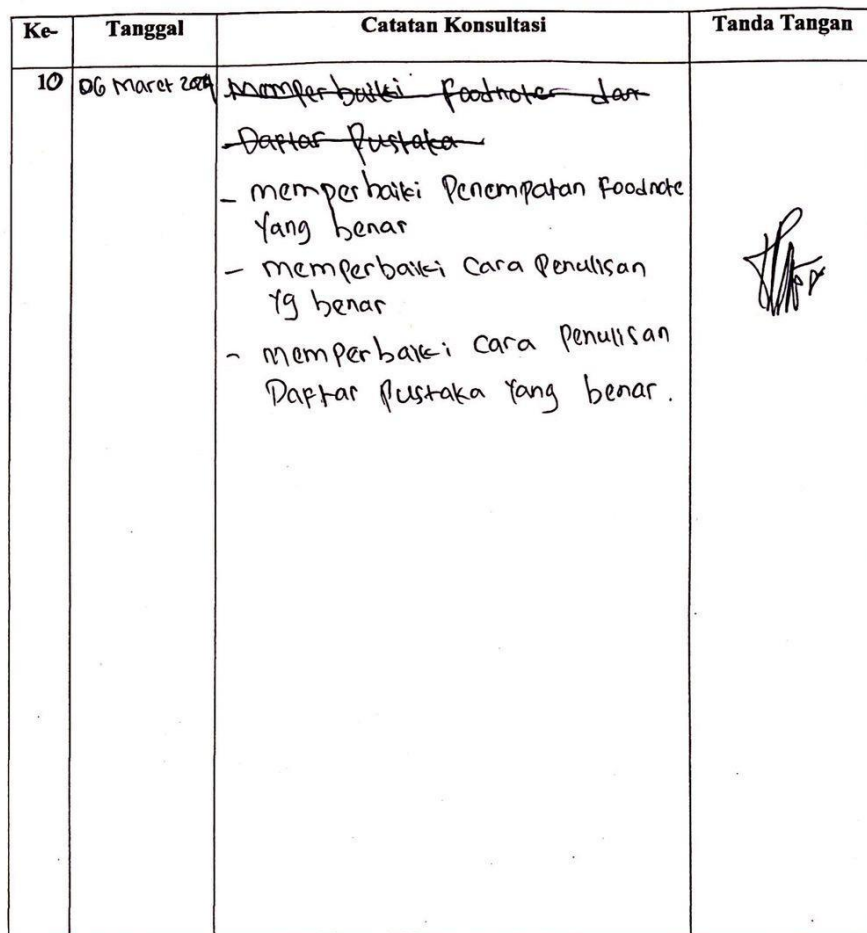 Ke- Tanggal Catatan Konsultasi Tanda Tangan
10 06 Maret 2024 Memperbaiki Foodnoter dan
Daftar Pustaka
- memperbaiki Penempatan Foodnote
Yang benar
- memperbaiki Cara Penulisan
Yg benar
- memperbaiki Cara Penulisan
Daftar Pustaka Yang benar.